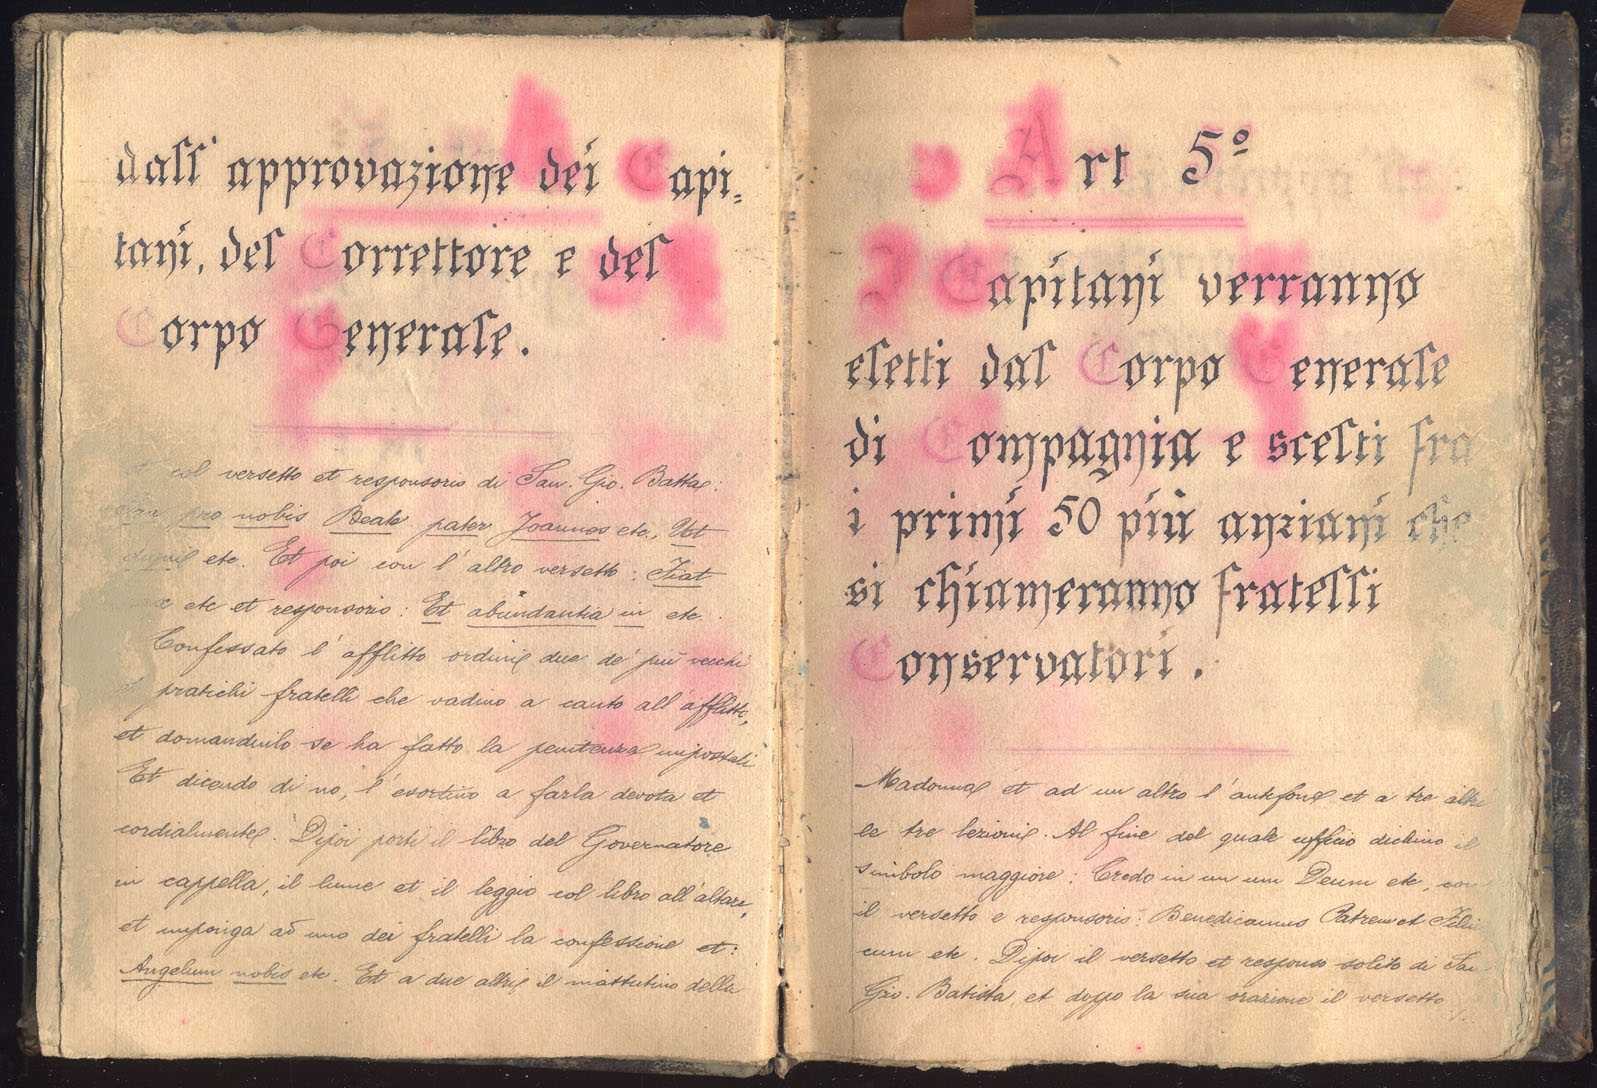 dall' approvazione dei Capi=
tani, del Correttore e del
Corpo Generale.
col versetto et responsorio di San. Gio. Batta:
pro nobis Beate pater Joannes etc., Ut
etc. Et poi con l' altro versetto: Fiat
etc et responsorio: Et abundantia in etc.
Confessato l' afflitto ordini due de' più vecchi
pratichi fratelli che vadino a canto all' afflitto,
et domandinlo se ha fatto la penitenza impostali
Et dicendo di no, l' esortino a farla devota et
cordialmente. Dipoi porti il libro del Governatore
in cappella, il lume et il leggio col libro all' altare,
et imponga ad uno dei fratelli la confessione et:
Angelum nobis etc. Et a due altri il mattutino della
Art 5º
I Capitani verranno
eletti dal Corpo Generale
di Compagnia e scelti fra
i primi 50 più anziani che
si chiameranno fratelli
Conservatori.
Madonna et ad un altro l' antifona et a tre altri
le tre lezioni. Al fine del quale uffizio dichino il
simbolo maggiore: Credo in un um Deum etc, con
il versetto e responsorio: Benedicamus Patrem et Filiu
cum etc. Dipoi il versetto et responso solito di San
Gio. Batista, et doppo la sua orazione il versetto